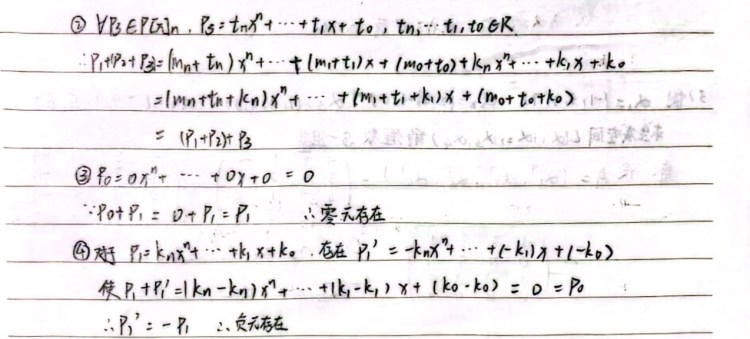 ② ∀P₃∈P[x]n, P₃=tnxⁿ+⋯+t₁x+t₀, tn,⋯t₁,t₀∈R
∴P₁+(P₂+P₃)=(mn+tn)xⁿ+⋯+(m₁+t₁)x+(m₀+t₀)+knxⁿ+⋯+k₁x+k₀
=(mn+tn+kn)xⁿ+⋯+(m₁+t₁+k₁)x+(m₀+t₀+k₀)
=(P₁+P₂)+P₃
③ P₀=0xⁿ+⋯+0x+0=0
∵P₀+P₁=0+P₁=P₁ ∴零元存在
④对于 P₁=knxⁿ+⋯+k₁x+k₀ 存在 P₁'=-knxⁿ+⋯+(-k₁)x+(-k₀)
使P₁+P₁'=(kn-kn)xⁿ+⋯+(k₁-k₁)x+(k₀-k₀)=0=P₀
∴P₁'=-P₁ ∴负元存在